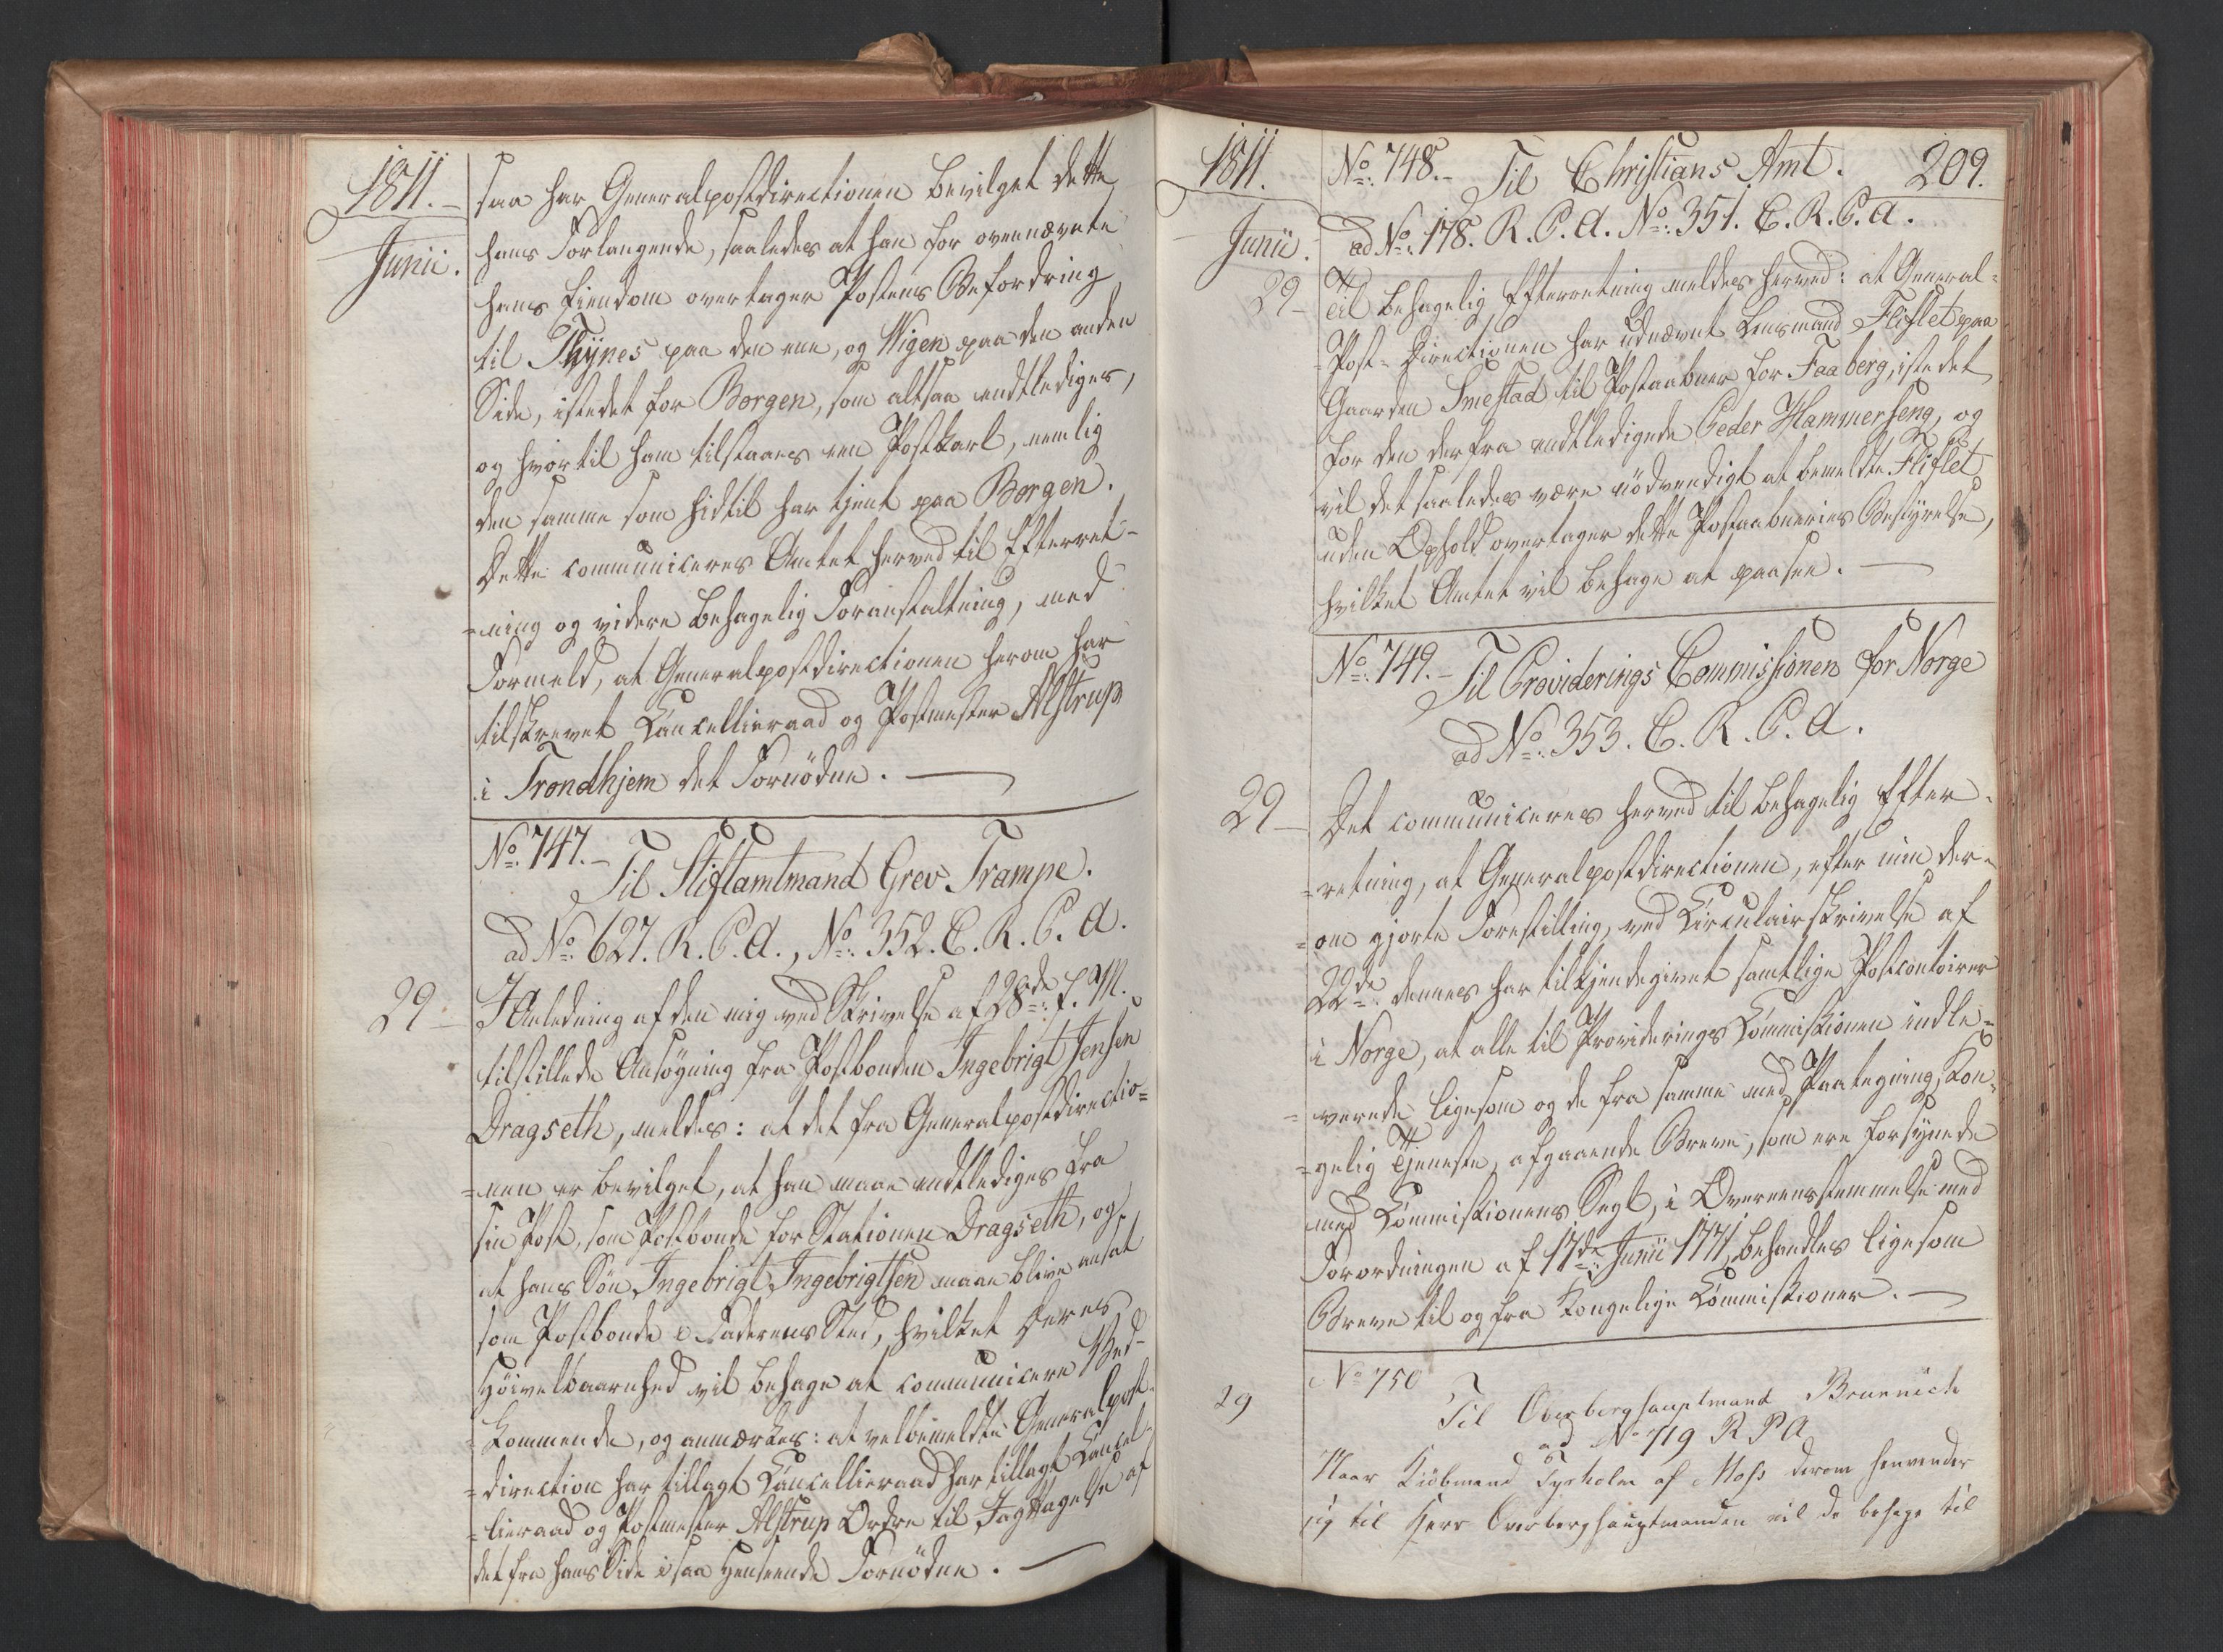 1811.
Junii.
saa har Generalpostdirectionen bevilget dette
hans Forlangende, saaledes at han for ovennævnte
hans Eiendom overtager Postens Befordring
til Thÿnes paa den ene, og Wigen paa den anden
Side, istedet for Borgen, som altsaa entlediges,
og hvortil ham tilstaaes een Postkarl, nemlig
den samme som hidtil har tjent paa Borgen.
Dette communiceres Amtet herved til Efterret-
=ning og videre behagelig Foranstaltning, med
Formeld, at Generalpostdirectionen herom har
tilskrevet Cancellieraad og Postmester Alstrup
i Trondhjem det Fornødne.
No. 747.-
Til Stiftamtmand Grev Trampe.
ad No. 627. R. P. A., No. 352. C. R. P. A.
29
I Anledning af den mig ved Skrivelse af 28de f. M.
tilstillede Ansøgning fra Postbonden Ingebrigt Jensen
Dragseth, meldes: at det fra Generalpostdirectio=
=nen er bevilget, at han maae entlediges fra
sin Post, som Postbonde for Stationen Dragseth, og
at hans Søn Ingebrigt Ingebrigtsen maae blive ansat
som Postbonde i Faderens Sted, hvilket Deres
Høivelbaarnhed vil behage at communicere Ved-
kommende, og anmærkes: at velbemeldte Generalpost-
=direction har tillagt Cancellieraad har tillagt Cancel-
=lieraad og Postmester Alstrup Ordre til Iagttagelse af
det fra hans Side i saa Henseende Fornødne.
1811.
Junii.
209.
No. 748.-
Til Christians Amt.
ad No. 178. R. P. A. No. 351. C. R. P. A.
29
Til behagelig Efterretning meldes herved: at General=
=Post-Directionen har udnævnt Lensmand Fliflet paa
Gaarden Smestad til Postaabner for Faaberg, istedet
for den derfra entledigede Peder Hammerseng, og
vil det saaledes være nødvendigt at bemeldte Fliflet
uden Ophold overtager dette Postaabneries Bestyrelse,
hvilket Amtet vil behage at paasee.
No. 749.-
Til Providerings Commissionen for Norge
ad No. 353. C. R. P. A.
29
Det communiceres herved til behagelig Efter=
=retning, at Generalpostdirectionen, efter min der=
=om gjorte Forestilling, ved Circulairskrivelse af
22de dennes har tilkjendegivet samtlige Postcontoirer
i Norge, at alle til Providerings Commissionen indle=
=verede ligesom og de fra samme med Paategning, Kon=
=gelig Tjeneste, afgaaende Breve, som ere forsynede
med Commissionens Segl, i Overeensstemmelse med
Forordningen af 17de Junii 1771, behandles ligesom
Breve til og fra Kongelige Commissioner.
No 750
29
Til Overberghauptmand Brunnich
ad No 719 R P A
Naar Kiøbmand Tyrholm af Moss derom henvender
sig til Herr Overberghauptmanden vil de behage til